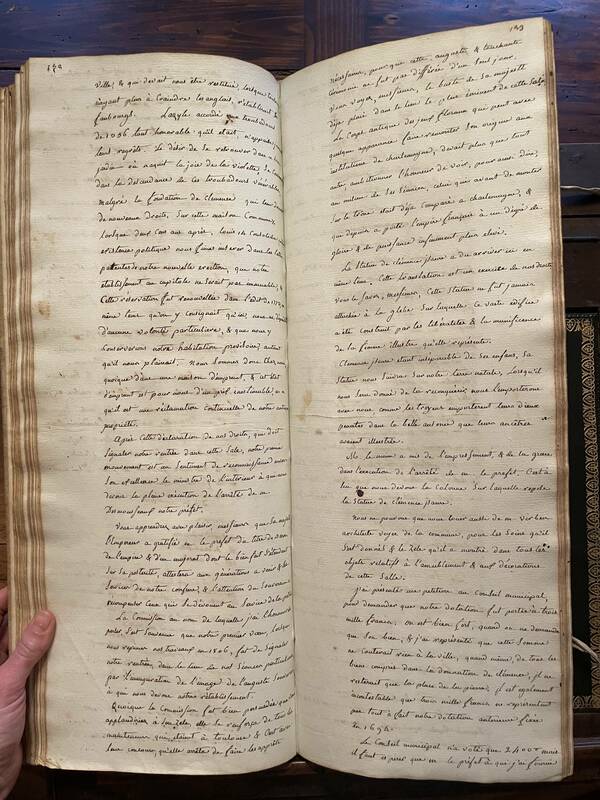 132
ville, & qui devait nous être restitué, lorsque
n'ayant plus à Craindre les anglais, rétablirent les
faubourgs. L'azyle accordé aux troubadours
de 1056 tout honorable qu'il etait, n'appaisa
leurs regrets. Le désir de se retrouver dans
jardin où naquit la joie de la violette,
dans la descendance de ces troubadours
malgré la fondation de Clémence qui leur
de nouveaux Droits, Sur cette maison Commune
Lorsque deux Cens ans après, Louis
existence politique nous fumes inserer dans les lettres
patentes de notre nouvelle erection, que notre
établissement au capitole ne serait pas immuable, &
Cette réservation fut renouvellée dans l'édit de 1773,
même tems qu'on y Consignait qu'ici, nous ne
d'aucune volonté particuliere, & que nous y
Conserverions notre habitation provisoire, autant
qu'il nous plairait. Nous sommes donc chez nous
quoique dans une maison d'emprunt, & cet état
d'emprunt est pour nous d'un prix inestimable, en ce
qu'il est une réclamation continuelle de notre antique
propriété.
Après Cette déclaration de nos droits, qui doit
signaler notre rentrée dans cette Salle, notre premier
mouvement est un Sentiment de reconnaissance envers
Son excellence le ministre de l'interieur à qui nous
devons la pleine exécution de l'arrêté de m.
Desmousseaux notre préfet.
Vous apprendrez avec plaisir, messieurs que Sa majesté
l'Empereur a gratifié m. le prefet du titre de baron
de l'empire & d'un majorat dont le bienfait s'étendant
Sur Sa postérité, attestera aux générations à venir & les
Services de notre confrere, & l'attention du Souverain à
recompenser Ceux qui Se devouent au Service de la patrie
La Commission au nom de laquelle j'ai l'honneur de
parler, S'est souvenue que notre premier devoir, lorsque
nous reprimes nos travaux en 1806, fut de signaler
notre rentrée dans le lieu de nos Séances particulieres
par l'inauguration de l'image de l'auguste Souverain
à qui nous devons notre rétablissement.
Quoique la Commission fut bien persuadée que vous
applaudiriez à Son zèle, elle Se renforça de tous les
mainteneurs qui étaient à toulouse & C'est avec
leur concours, qu'elle arrêta de faire les apprêts
133
nécessaires, pour que cette auguste & touchante
Cérémonie ne fut pas différée d'un Seul jour.
Vous voyez, messieurs, le buste de Sa majesté
déja placé dans le lieu le plus éminent de cette Salle
Le Corps antique des jeux floraux qui peut avec
quelque apparence faire remonter Son origine aux
institutions de charlemagne, devait plus que tout
autre, ambitionner l'honneur de voir, pour ainsi dire,
au milieu de Ses Séances, celui qui avant de monter
Sur le trône etait déja Comparé à charlemagne, &
qui depuis a porté l'empire français à un dégré de
gloire & de puissance infiniment plus élevé.
La Statue de clémence jsaure a du arriver ici en
même tems. Cette translation est un exercice de nos droits
vous le Savez, messieurs, Cette Statue ne fut jamais
attachée à la glebe Sur laquelle Ce vaste édifice
a été Construit par les libéralités & la munificence
de la femme illustre qu'elle représente.
Clémence jsaure étant inséparable de Ses enfans, Sa
Statue nous Suivra Sur notre terre natale, Lorsqu'il
nous Sera donné de la reconquérir; nous l'emporterons
avec nous comme les troyens emporterent leurs dieux
penates dans la belle ausonie que leurs ancêtres
avaient illustrée.
M. le maire a mis de l'empressement, & de la grace
dans l'exécution de l'arrêté de m. le prefet. C'est à
lui que nous devons la Colonne Sur laquelle repose
la Statue de clémence jsaure.
Nous ne pouvons que nous louer aussi de m. virben
architecte voyer de la commune, pour les Soins qu'il
S'est donnés & le zèle qu'il a montré dans tous les
objets relatifs à l'ameublement & aux décorations
de cette Salle.
J'ai présenté une petition au Conseil municipal,
pour demander que notre dotation fut portée à trois
mille francs; on est bien fort, quand on ne demande
que Son bien, & j'ai représenté que cette Somme
ne Couterait rien à la ville, quand même, de tous les
biens compris dans la donnation de clémence, il ne
resterait que la place de la pierre; il est également
incontestable que trois mille francs ne representent
pas tout à fait notre dotation ancienne fixée
en 1694.
Le Conseil municipal n'a voté que 2400 ᶠ mais
il faut esperer que m. le préfet à qui j'ai fourni